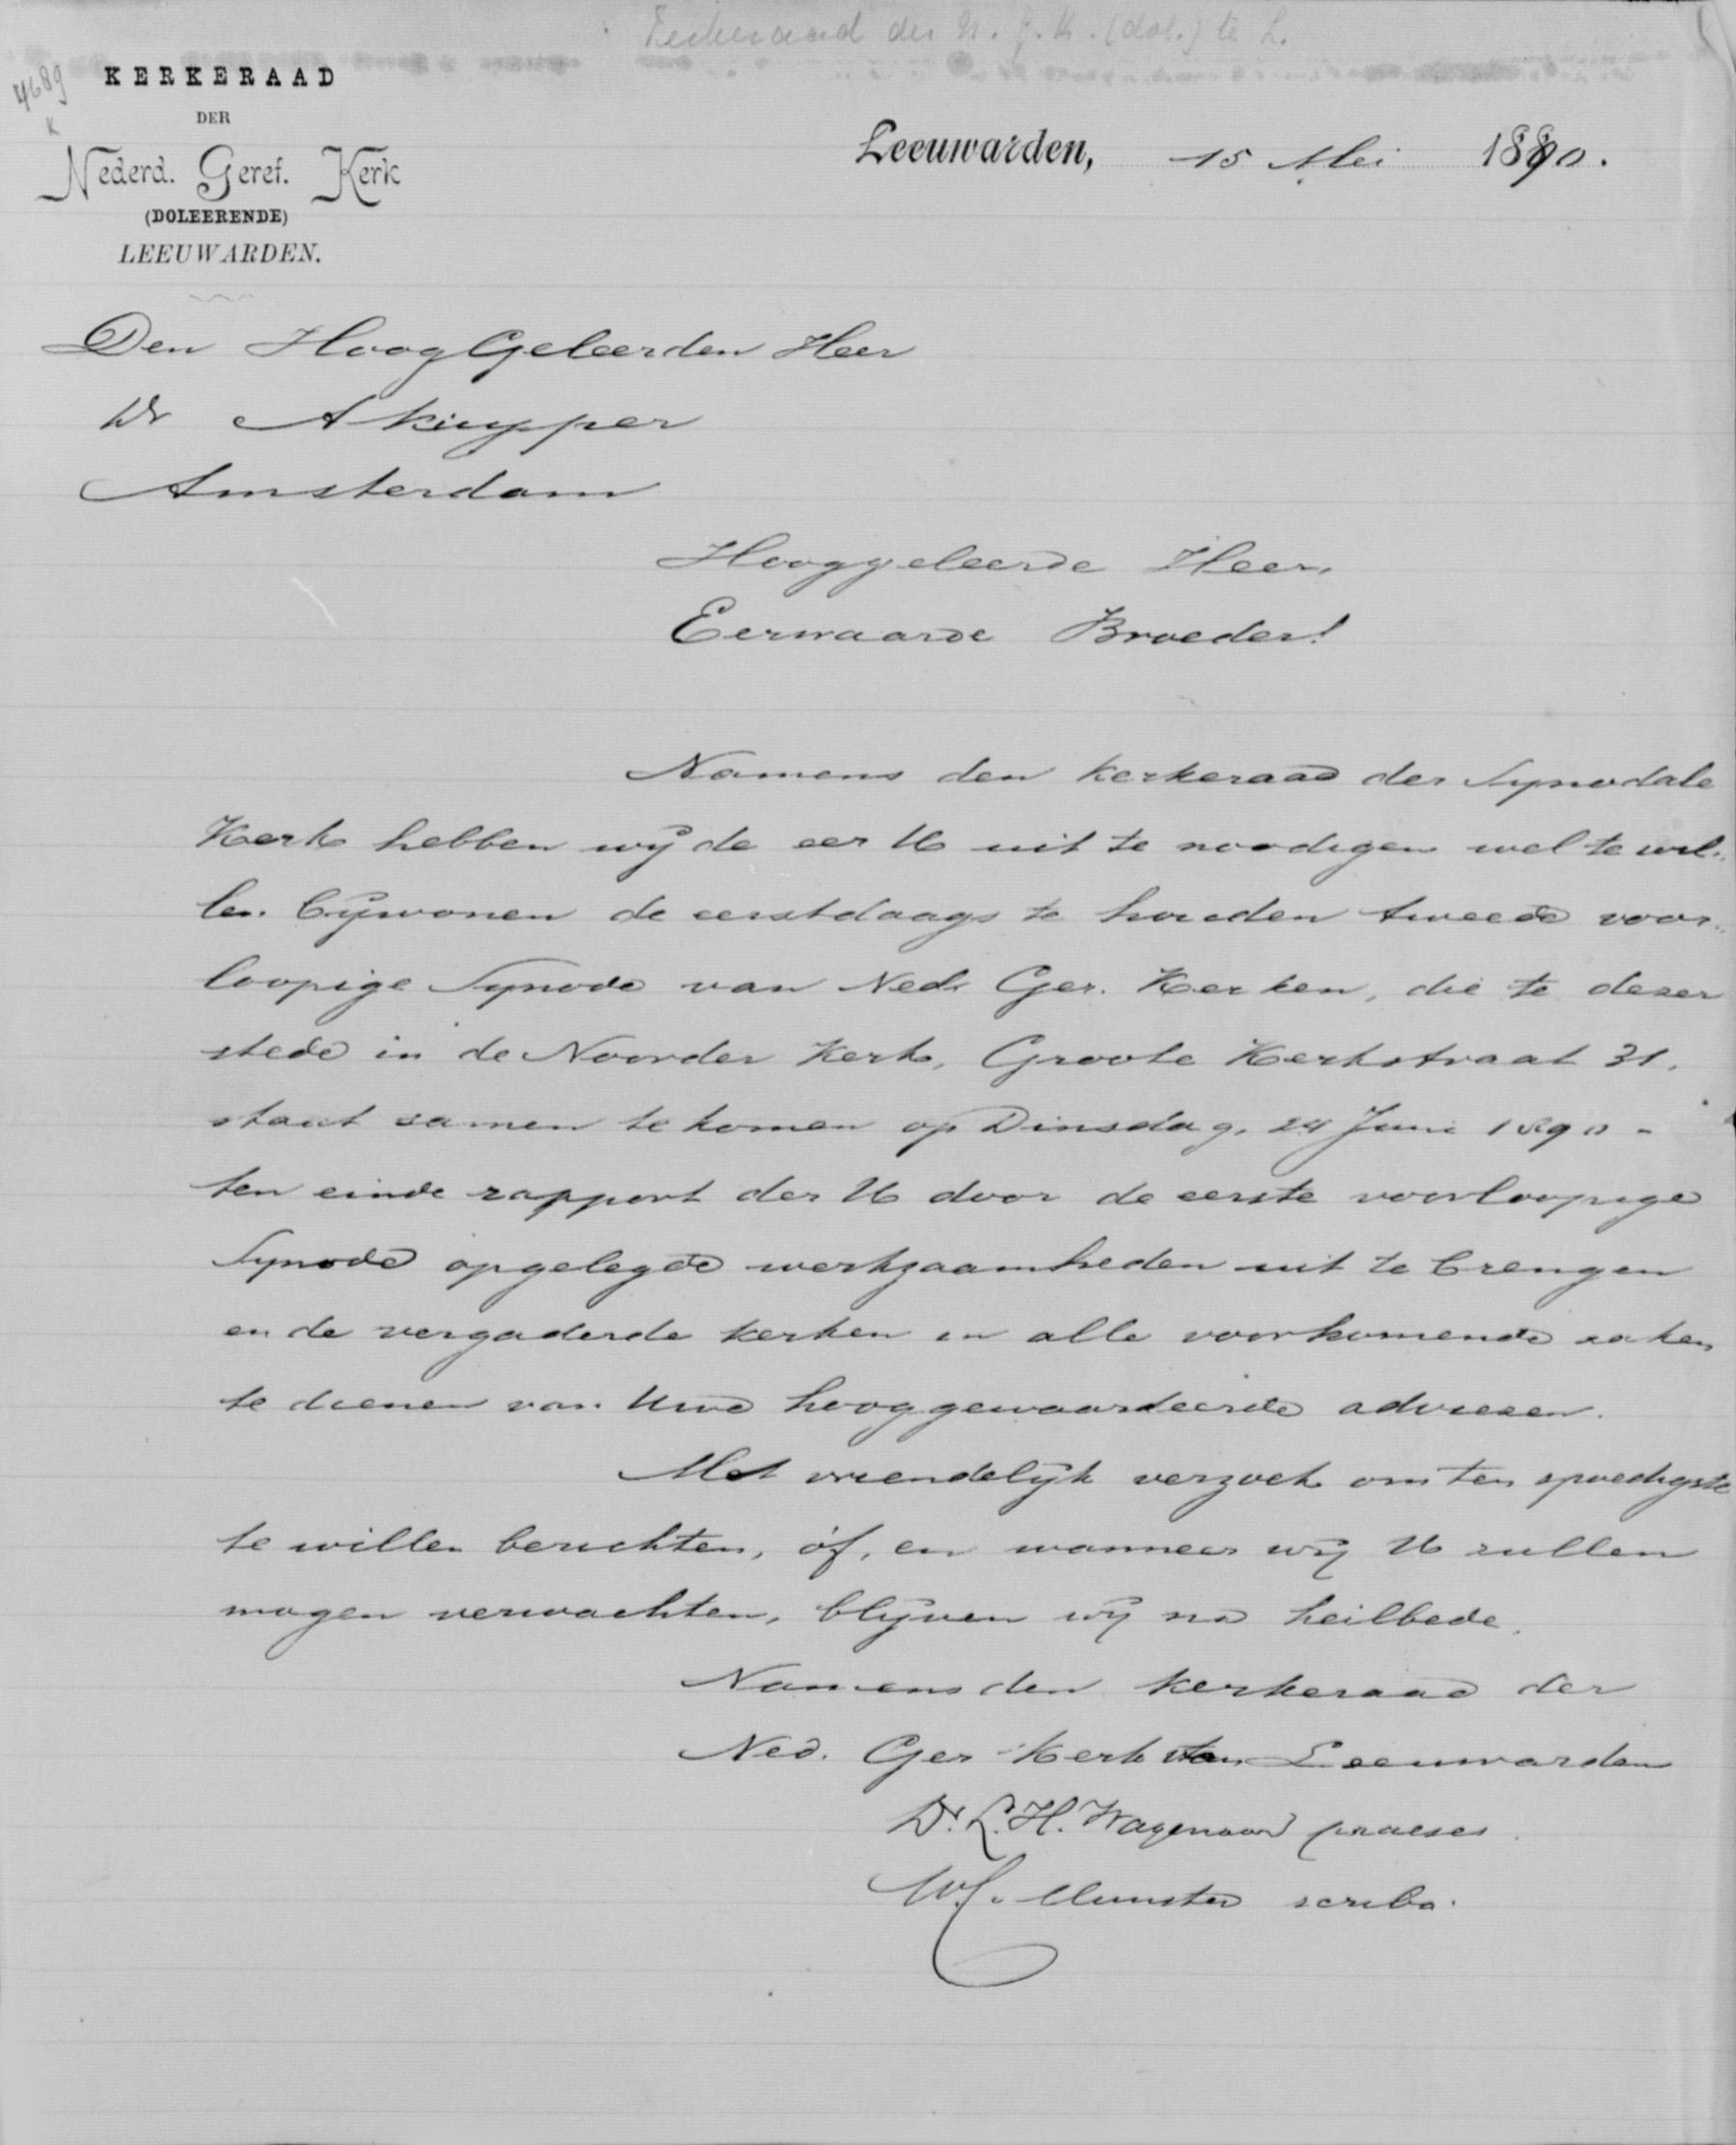 Kerkeraad der N. G. K. (dol.) te L.
4689
K
KERKERAAD
DER
Nederd. Geref. Kerk
(DOLEERENDE)
LEEUWARDEN.
Leeuwarden, 15 Mei 1890.
Den HoogGeleerden Heer
Dr A Kuyper
Amsterdam
Hooggeleerde Heer,
Eerwaarde Broeder!
Namens den kerkeraad der Synodale
Kerk hebben wij de eer U uit te noodigen wel te wil-
len bijwonen de eerstdaags te houden tweede voor-
loopige Synode van Ned. Ger. Kerken, die te dezer
stede in de Noorder Kerk, Groote Kerkstraat 31,
staat samen te komen op Dinsdag, 24 Juni 1890 -
ten einde rapport der U door de eerste voorloopige
Synode opgelegde werkzaamheden uit te brengen
en de vergaderde kerken in alle voorkomende zaken
te dienen van Uwe hooggewaardeerde adviezen.
Met vriendelijk verzoek om ten spoedigste
te willen berichten, óf, en wanneer wij U zullen
mogen verwachten, blijven wij na heilbede,
Namens den kerkeraad der
Ned. Ger Kerk van Leeuwarden
Dr. L. H. Wagenaar praeses.
Munster scriba.